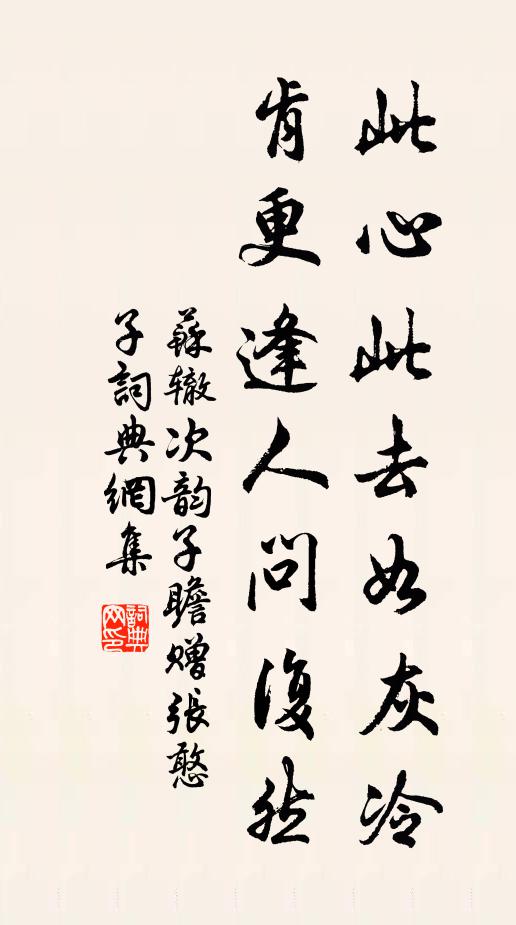 此心此去如灰冷
肯更逢人问復然
蘇辙次韵子瞻赠張憨
子詞典網集
詞典
网印